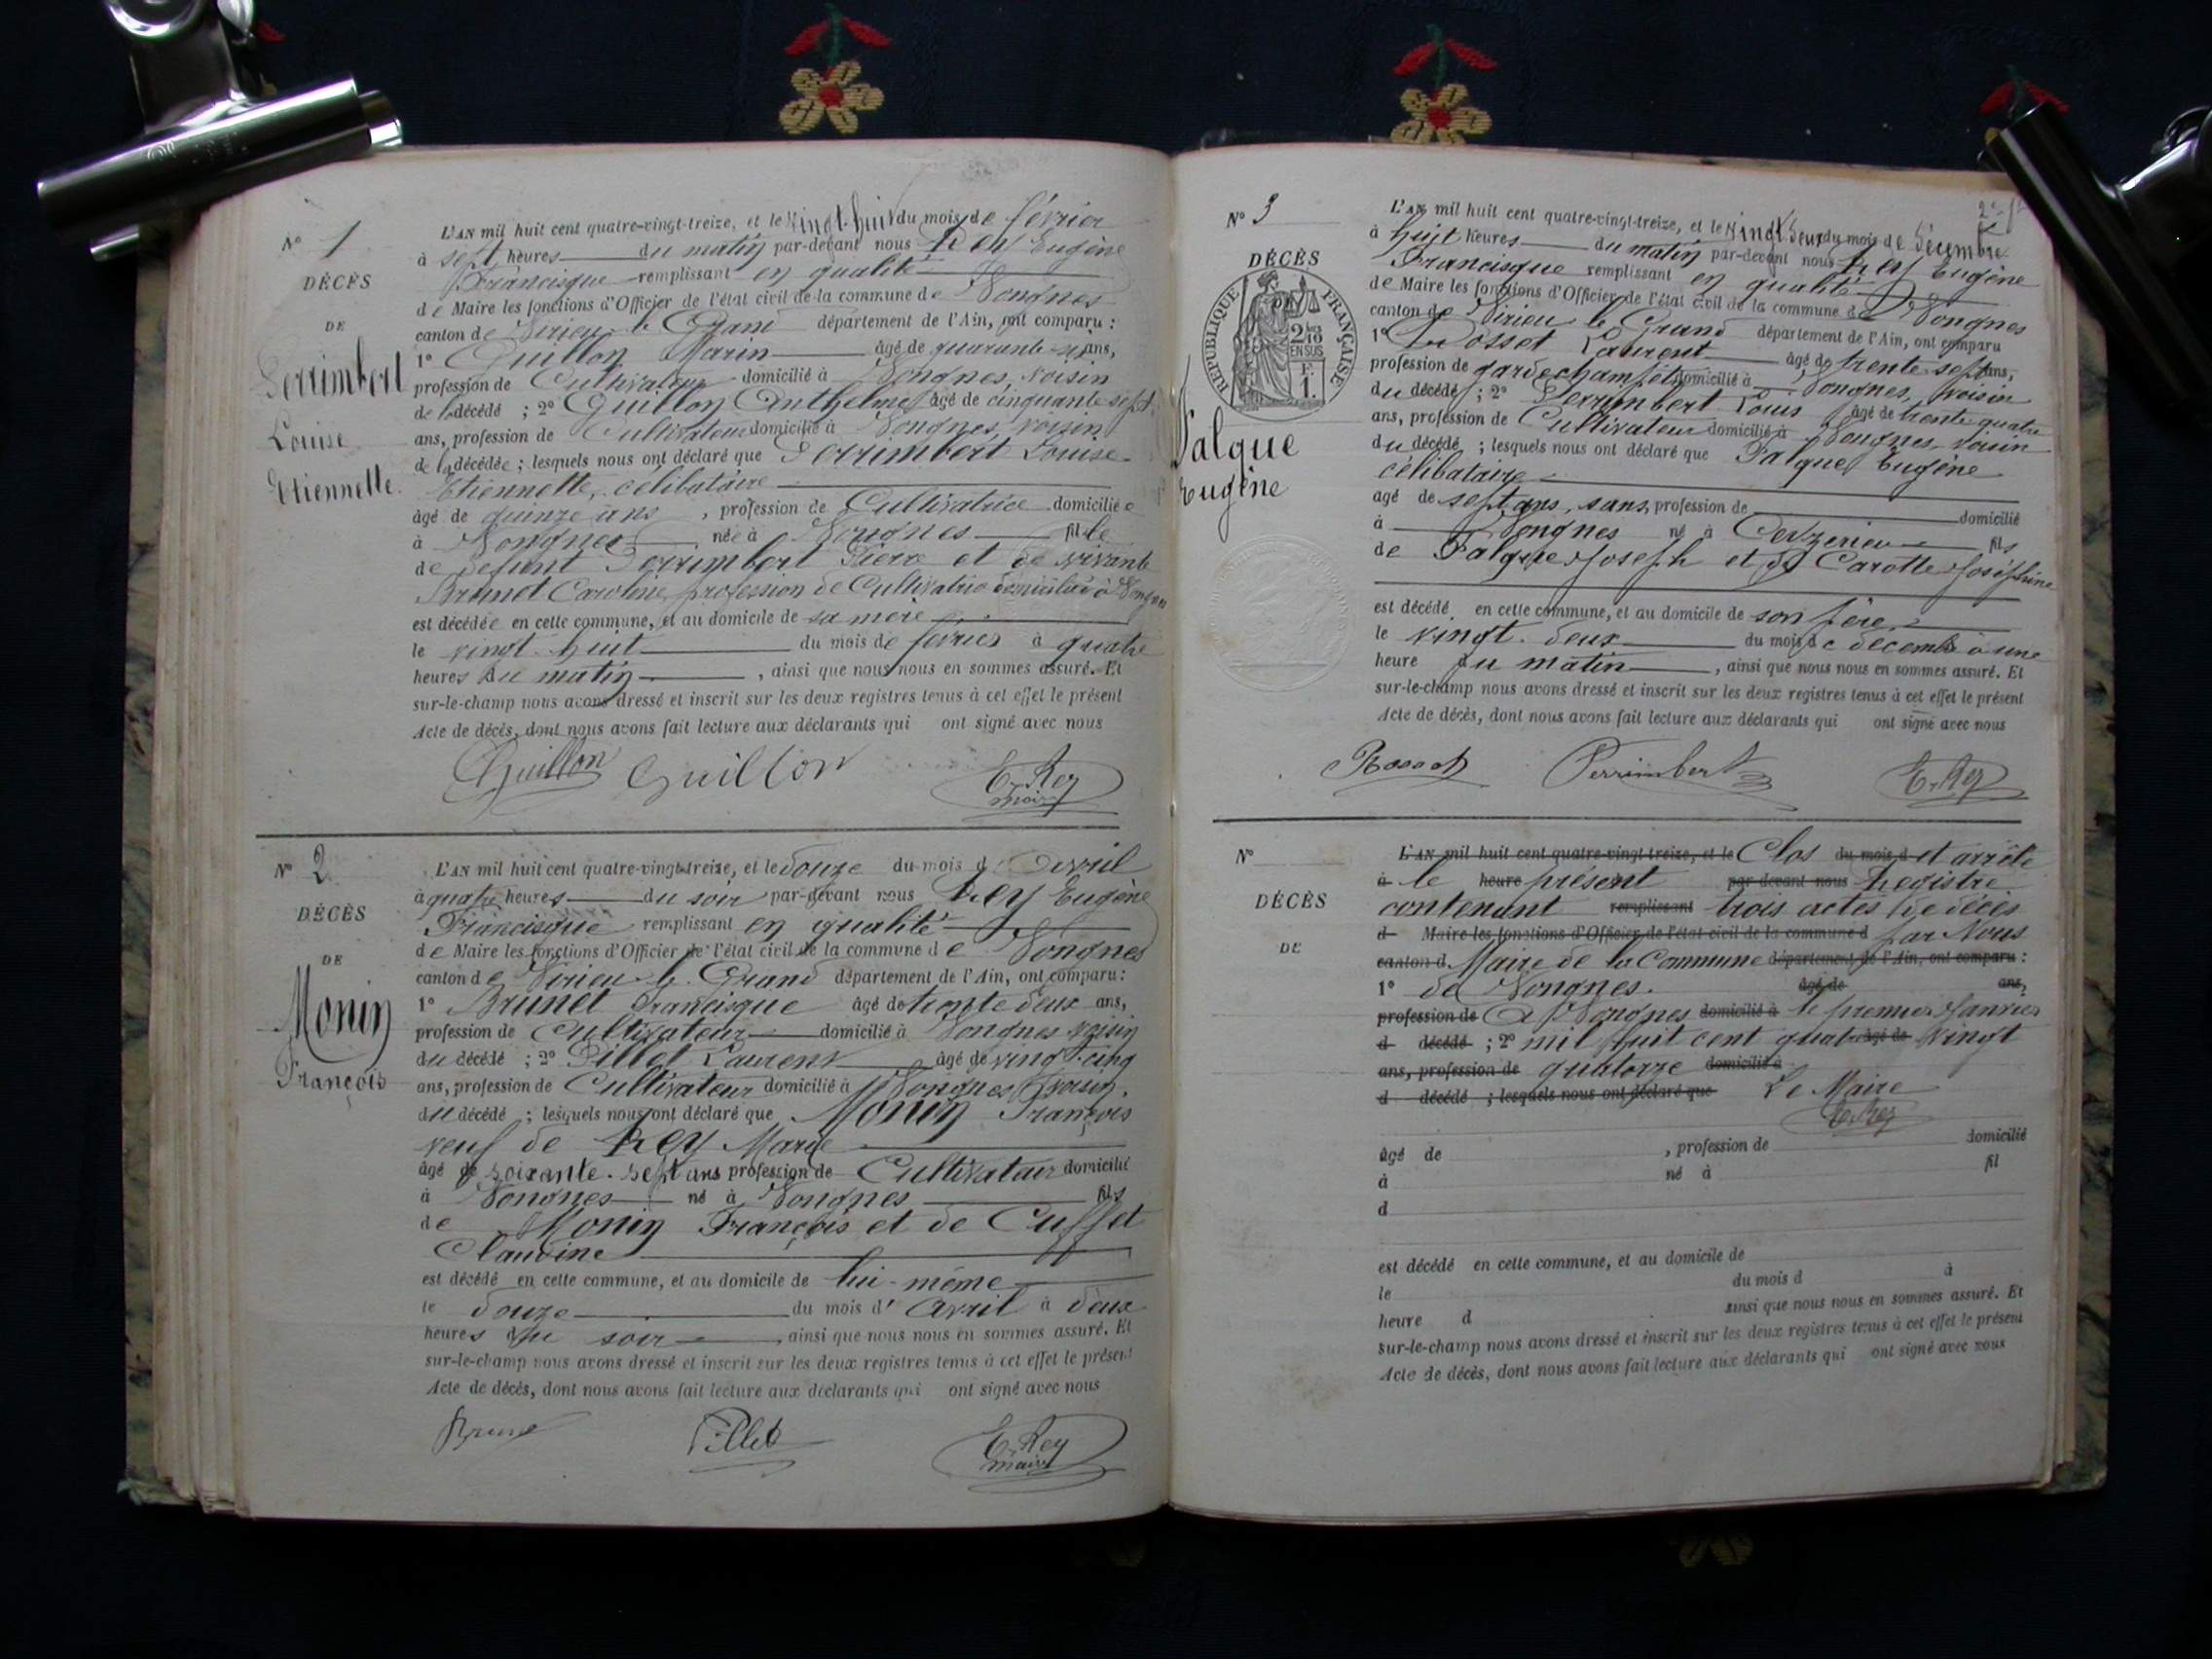 N° 1
DÉCÈS
DE
Perrimbert
Louise
Etiennette.
L'AN mil huit cent quatre-vingt-treize, et le vingt-huit du mois de février
à sept heures du matin par-devant nous Rey Eugène
Francisque remplissant en qualité
de Maire les fonctions d'Officier de l'état civil de la commune de Vongnes
canton de Virieu le Grand département de l'Ain, ont comparu :
1° Guillon Marin âgé de quarante ans,
profession de Cultivateur domicilié à Vongnes, voisin
de la décédé ; 2° Guillon Anthelme âgé de cinquante sept
ans, profession de Cultivateur domicilié à Vongnes, voisin
de la décédée ; lesquels nous ont déclaré que Perrimbert Louise
Etiennette, célibataire
âgé de quinze ans , profession de Cultivatrice domiciliée
à Vongnes née à Vongnes fille
de défunt Perrimbert Pierre et de vivante
Brunet Caroline, profession de Cultivatrice domiciliée à Vongnes
est décédée en cette commune, et au domicile de sa mère
le vingt-huit du mois de février à quatre
heures du matin , ainsi que nous nous en sommes assuré. Et
sur-le-champ nous avons dressé et inscrit sur les deux registres tenus à cet effet le présent
Acte de décès, dont nous avons fait lecture aux déclarants qui ont signé avec nous
Guillon Guillon E. Rey
maire
N° 2
DÉCÈS
DE
Monin
François
L'AN mil huit cent quatre-vingt-treize, et le douze du mois d' Avril
à quatre heures du soir par-devant nous Rey Eugène
Francisque remplissant en qualité
de Maire les fonctions d'Officier de l'état civil de la commune de Vongnes
canton de Virieu le Grand département de l'Ain, ont comparu :
1° Brunet Francisque âgé de trente deux ans,
profession de Cultivateur domicilié à Vongnes voisin
du décédé ; 2° Pillet Laurent âgé de vingt cinq
ans, profession de Cultivateur domicilié à Vongnes, voisin.
du décédé ; lesquels nous ont déclaré que Monin François
veuf de Rey Marie
âgé de soixante-sept ans profession de Cultivateur domicilié
à Vongnes né à Vongnes fils
de Monin François et de Cusset
Claudine
est décédé en cette commune, et au domicile de lui-même
le douze du mois d' Avril à deux
heures du soir , ainsi que nous nous en sommes assuré. Et
sur-le-champ nous avons dressé et inscrit sur les deux registres tenus à cet effet le présent
Acte de décès, dont nous avons fait lecture aux déclarants qui ont signé avec nous
Brunet Pillet E. Rey
maire
N° 3
DÉCÈS
DE
RÉPUBLIQUE FRANÇAISE
2/10
EN SUS
F.
1.
Falque
Eugène
L'AN mil huit cent quatre-vingt-treize, et le vingt deux du mois de Décembre
à huit heures du matin par-devant nous Rey Eugène
Francisque remplissant en qualité
de Maire les fonctions d'Officier de l'état civil de la commune de Vongnes
canton de Virieu le Grand département de l'Ain, ont comparu
1° Rosset Laurent âgé de trente sept ans,
profession de garde champêtre domicilié à Vongnes, voisin
du décédé ; 2° Perrimbert Louis âgé de trente quatre
ans, profession de Cultivateur domicilié à Vongnes, voisin
du décédé ; lesquels nous ont déclaré que Falque Eugène
célibataire
âgé de sept ans, sans, profession de domicilié
à Vongnes né à Ceyzérieu fils
de Falque Joseph et de Carotte Joséphine
est décédé en cette commune, et au domicile de son père
le vingt-deux du mois de décembre à une
heure du matin , ainsi que nous nous en sommes assuré. Et
sur-le-champ nous avons dressé et inscrit sur les deux registres tenus à cet effet le présent
Acte de décès, dont nous avons fait lecture aux déclarants qui ont signé avec nous
Rosset Perrimbert E. Rey
N°
DÉCÈS
DE
L'AN mil huit cent quatre-vingt-treize, et le Clos du mois d et arrêté
à le heure présent par-devant nous Registre
contenant remplissant trois actes de décès
d Maire les fonctions d'Officier de l'état civil de la commune d par Nous
canton d Maire de la Commune département de l'Ain, ont comparu :
1° de Vongnes. âgé de ans,
profession de A Vongnes domicilié à le premier Janvier
d décédé ; 2° mil huit cent quatre âgé de vingt
ans, profession de quatorze domicilié à
d décédé ; lesquels nous ont déclaré que Le Maire
E. Rey
âgé de , profession de domicilié
à né à fil
d
est décédé en cette commune, et au domicile de
le du mois d à
heure d ainsi que nous nous en sommes assuré. Et
sur-le-champ nous avons dressé et inscrit sur les deux registres tenus à cet effet le présent
Acte de décès, dont nous avons fait lecture aux déclarants qui ont signé avec nous